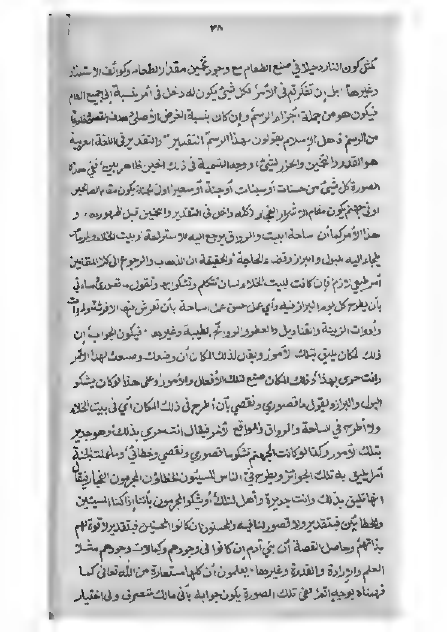 ٣٨
كمثل كون النار دخيلا في صنع الطعام مع وجود تخمين مقدار الطعام وكوائف
وغيرها بل إن تفكرتم في الأمر فكل شئ يكون له دخل في أمر نسبة إلى جميع العالم
فيكون هو من جملة أجزاء الرسم وإن كان بنسبة الغرض الأصلي
من الرسم وأهل الإسلام يقولون لهذا الرسم التقدير والتقدير في اللغة العربية
هو القدر والتخمين والحزر لشئ ووجه التسمية في ذلك الحين ظاهر بين ففي هذه
الصورة كل شئ من حسنات أو سيئات أو جنة أو سعير
أو في جهنم يكون مقام الأشرار الفجار وكله داخل في التقدير والتخمين قبل ظهوره و
هذا الأمر كما أن ساحة البيت والرواق يوضع إليه للاستراحة وبيت الخلاء
إليه للبول والبراز ورفض الحاجة والحقيقة أن الذهاب والرجوع إلى كلا المقامين
أمر طبيعي لازم فإن كانت لبيت الخلاء لسان تتكلم وتشكو بها وتقول ما قصوري
بأن يطرح كل يوم البراز فيه وأي عمل حسن عمل ساحة بأن تفرش فيها الأفرشة
وأدوات الزينة والقناديل والعطور الروائح الطيبة وغيرها فيكون الجواب أن
ذلك المكان يليق بتلك الأمور ويقال لذلك المكان أن وضعك وصنعك لهذا الأمر
وأنت حري بهذا وذلك المكان صنع لتلك الأفعال والأمور وعلى هذا لو كان يشكو
البول والبراز ويقول ما قصوري ونقصي بأن أطرح في ذلك المكان أي في بيت الخلاء
ولا أطرح في الساحة والرواق والمواقع الأخر فيقال أنت حري بذلك وهو جدير
بتلك الأمور وكذا لو كانت الجهنم تشكو ما قصوري ونقصي وخطائي
أمر يليق به تلك الجوائز ويطرح في الناس المسيئون الخطاؤن المجرمون الفجار فيقال
أنها تليق بذلك وأنت جديرة وأهل لتلك أو يشكو المجرمون بأننا إذا كنا المسيئين
والخطائين فبتقدير ولا قصور لنا فيه والمحسنون إن كانوا المحسنين فبتقدير لا قوة لهم
وحاصل القصة أن بني آدم إن كانوا في وجودهم وكمالات وجودهم مثلا
العلم والإرادة والقدرة وغيرها يعلمون أن كلها مستعارة من الله تعالى كما
فهمناه بوجه أتم ففي تلك الصورة يكون جوابه بأني مالك متصرف ولي اختيار